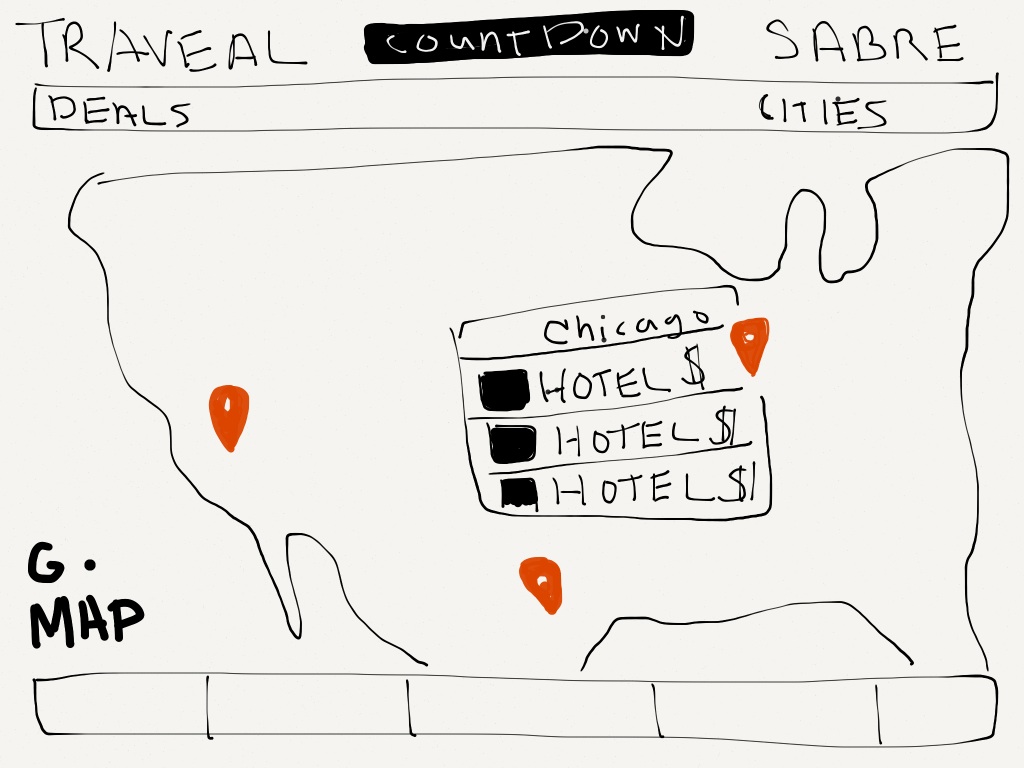 TRAVEAL COUNTDOWN SABRE
DEALS CITIES
Chicago
HOTEL $
HOTEL $
HOTEL $
G.
MAP